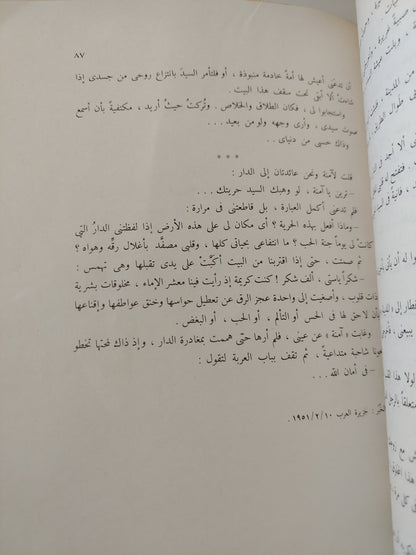 ٨٧
أن تدعنى أعيش لها أمةً خادمة منبوذة ، أو فلتأمر السيدَ بانتزاع روحى من جسدى إذا
شاءت ألا أبقى تحت سقف هذا البيت .
واستجابوا لى ، فكان الطلاق والخلاص . وتُركتُ حيثُ أريد ، مكتفيةً بأن أسمع
صوت سيدى ، وأرى وجهه ولو من بعيد . . .
وذاك حسبى من دنياى . .
* * *
قلت لآمنة ونحن عائدتان إلى الدار :
– ترين يا آمنة ، لو وهبك السيد حريتك . .
فلم تدعنى أكمل العبارة ، بل قاطعتنى فى مرارة :
– وماذا أفعل بهذه الحرية ؟ أى مكان لى على هذه الأرض إذا لفظتنى الدارُ التى
كانت لى يوماً جنة الحب ؟ ما انتفاعى بحياتى كلها ، وقلبى مصفَّد بأغلال رقِّه وهواه ؟
ثم صمتت ، حتى إذا اقتربنا من البيت أكبَّتْ على يدى تقبلها وهى تهمس :
– شكراً ياستى ، ألف شكر ! كنت كريمة إذ رأيت فينا معشر الإماء ، مخلوقات بشرية
ذات قلوب ، وأصغيت إلى واحدة عجز الرق عن تعطيل حواسها وخنق عواطفها وإقناعها
بأن لاحق لها فى الحس أو التألم ، أو الحب ، أو البغض .
وغابت « آمنة » عن عينى ، فلم أرها حتى هممت بمغادرة الدار ، وإذ ذاك لمحتها تخطو
نحونا شاحبة متداعيةً ، ثم تقف بباب العربة لتقول :
– فى أمان الله . . .
جزيرة العرب ١٩٥١/٢/١٠ .